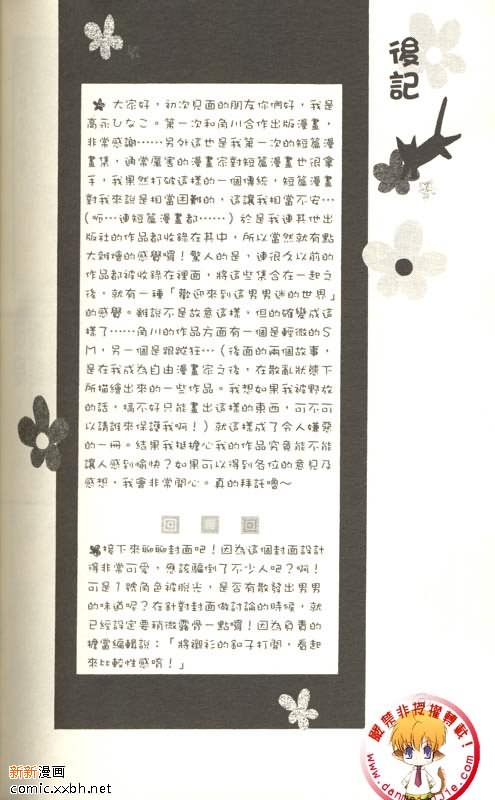 後記
大家好，初次見面的朋友你們好，我是
高永ひなこ。第一次和角川合作出版漫畫，
非常感謝……另外這也是我第一次的短篇漫
畫集，通常厲害的漫畫家對短篇漫畫也很拿
手，我果然打破這樣的一個傳統，短篇漫畫
對我來說是相當困難的，這讓我相當不安…
（呃…連短篇漫畫都……）於是我連其他出
版社的作品都收錄在其中，所以當然就有點
大雜燴的感覺嘍！驚人的是，連很久以前的
作品都被收錄在裡面，將這些集合在一起之
後，就有一種「歡迎來到這男男迷的世界」
的感覺。雖說不是故意這樣，但的確變成這
樣了……角川的作品方面有一個是輕微的S
M，另一個是跟蹤狂…（後面的兩個故事，
是在我成為自由漫畫家之後，在散亂狀態下
所描繪出來的一些作品。我想如果我被野放
的話，搞不好只能畫出這樣的東西，可不可
以請誰來保護我啊！）就這樣成了令人嫌惡
的一冊。結果我挺擔心我的作品究竟能不能
讓人感到愉快？如果可以得到各位的意見及
感想，我會非常開心。真的拜託嚕～
接下來聊聊封面吧！因為這個封面設計
得非常可愛，應該騙倒了不少人吧？啊！
可是1號角色被脫光，是否有散發出男男
的味道呢？在針對封面做討論的時候，就
已經設定要稍微露骨一點嚕！因為負責的
擔當編輯說：「將襯衫的釦子打開，看起
來比較性感唷！」
嚴禁非授權轉載！
新新漫画
comic.xxbh.net